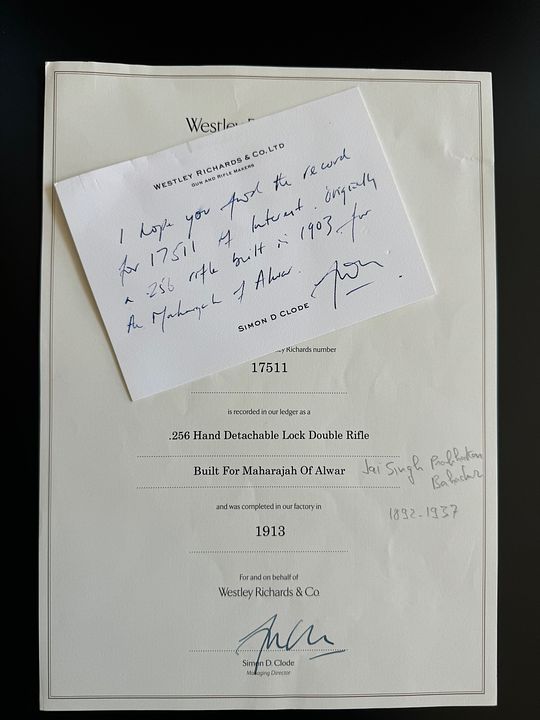 Westley
WESTLEY RICHARDS & CO, LTD
GUN AND RIFLE MAKERS
I hope you find the record
for 17511 of Interest. Originally
a .256 rifle built in 1903 for
the Maharajah of Alwar.
SIMON D CLODE
Richards number
17511
is recorded in our ledger as a
.256 Hand Detachable Lock Double Rifle
Built For Maharajah Of Alwar
Jai Singh Prabhakar
Bahadur
1892-1937
and was completed in our factory in
1913
For and on behalf of
Westley Richards & Co.
Simon D. Clode
Managing Director